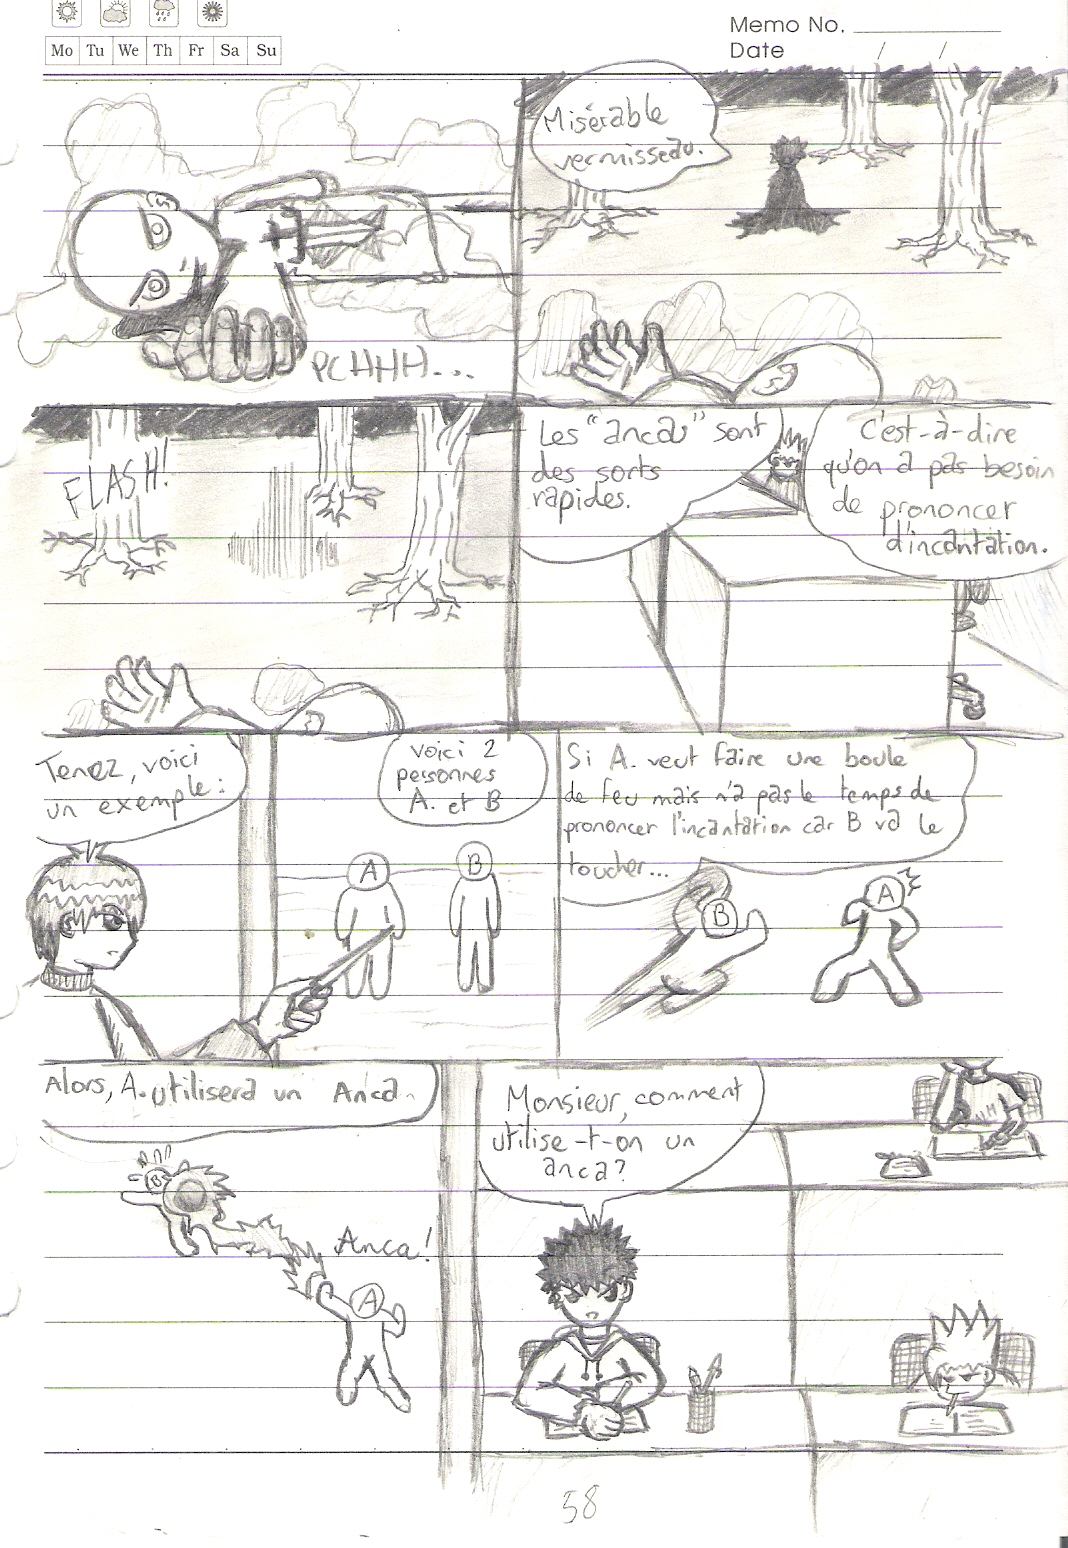 Memo No.
Date / /
Mo Tu We Th Fr Sa Su
Misérable
vermisseau.
PCHHH...
FLASH!
Les "ancas" sont
des sorts
rapides.
C'est-à-dire
qu'on a pas besoin
de prononcer
d'incantation.
Tenez, voici
un exemple:
voici 2
personnes
A. et B
A
B
Si A. veut faire une boule
de feu mais n'a pas le temps de
prononcer l'incantation car B va le
toucher...
B
A
Alors, A. utilisera un Anca..
B
Anca!
A
Monsieur, comment
utilise-t-on un
anca?
58